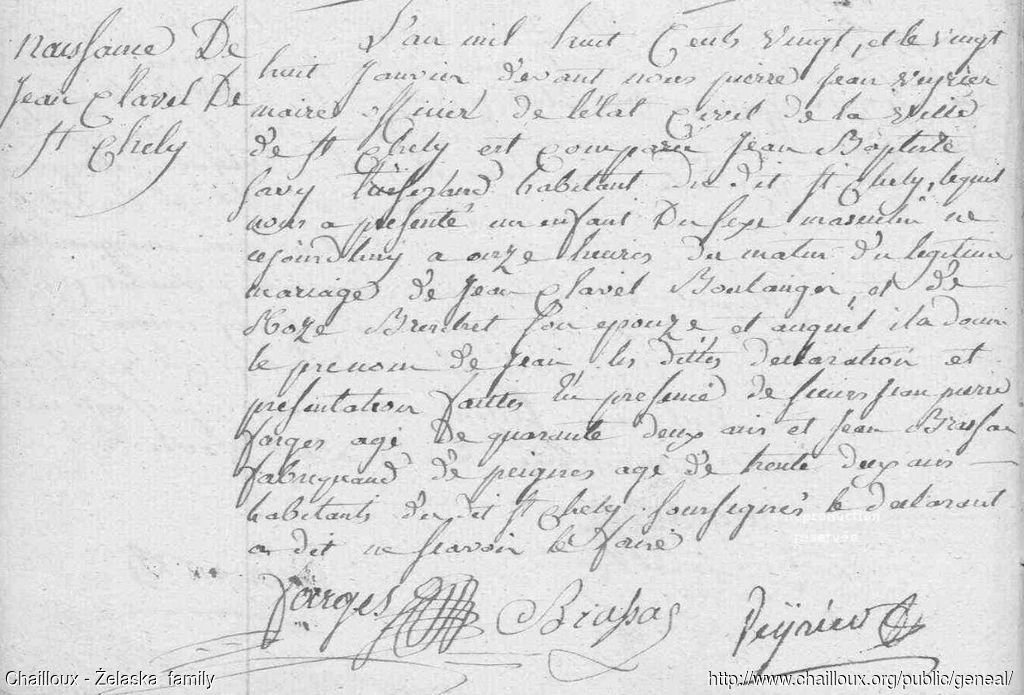 naissance De
Jean Clavel De
St Chely
L'an mil huit Cents vingt, et le vingt
huit Janvier devant nous pierre Jean veyrier
maire officier de l'état Civil de la ville
de St Chely est comparu Jean Baptiste
Savy habitant du dit St Chely, lequel
nous a présenté un enfant Du sexe masculin né
cejourdhuy a onze heures du matin du legitime
mariage de Jean Clavel Boulanger, et de
Roze son epouze et auquel il a donné
le prenom de Jean les dittes declaration et
presentation faittes En presence de sieurs Jean pierre
forges agé de quarante deux ans et Jean Brassac
fabriquand de peignes agé de trente deux ans
habitants du dit St Chely soussignés le declarant
a dit ne scavoir le faire
forges Brassac Veÿrier
reproduction
reservee
Chailloux - Żelaska family
http://www.chailloux.org/public/geneal/